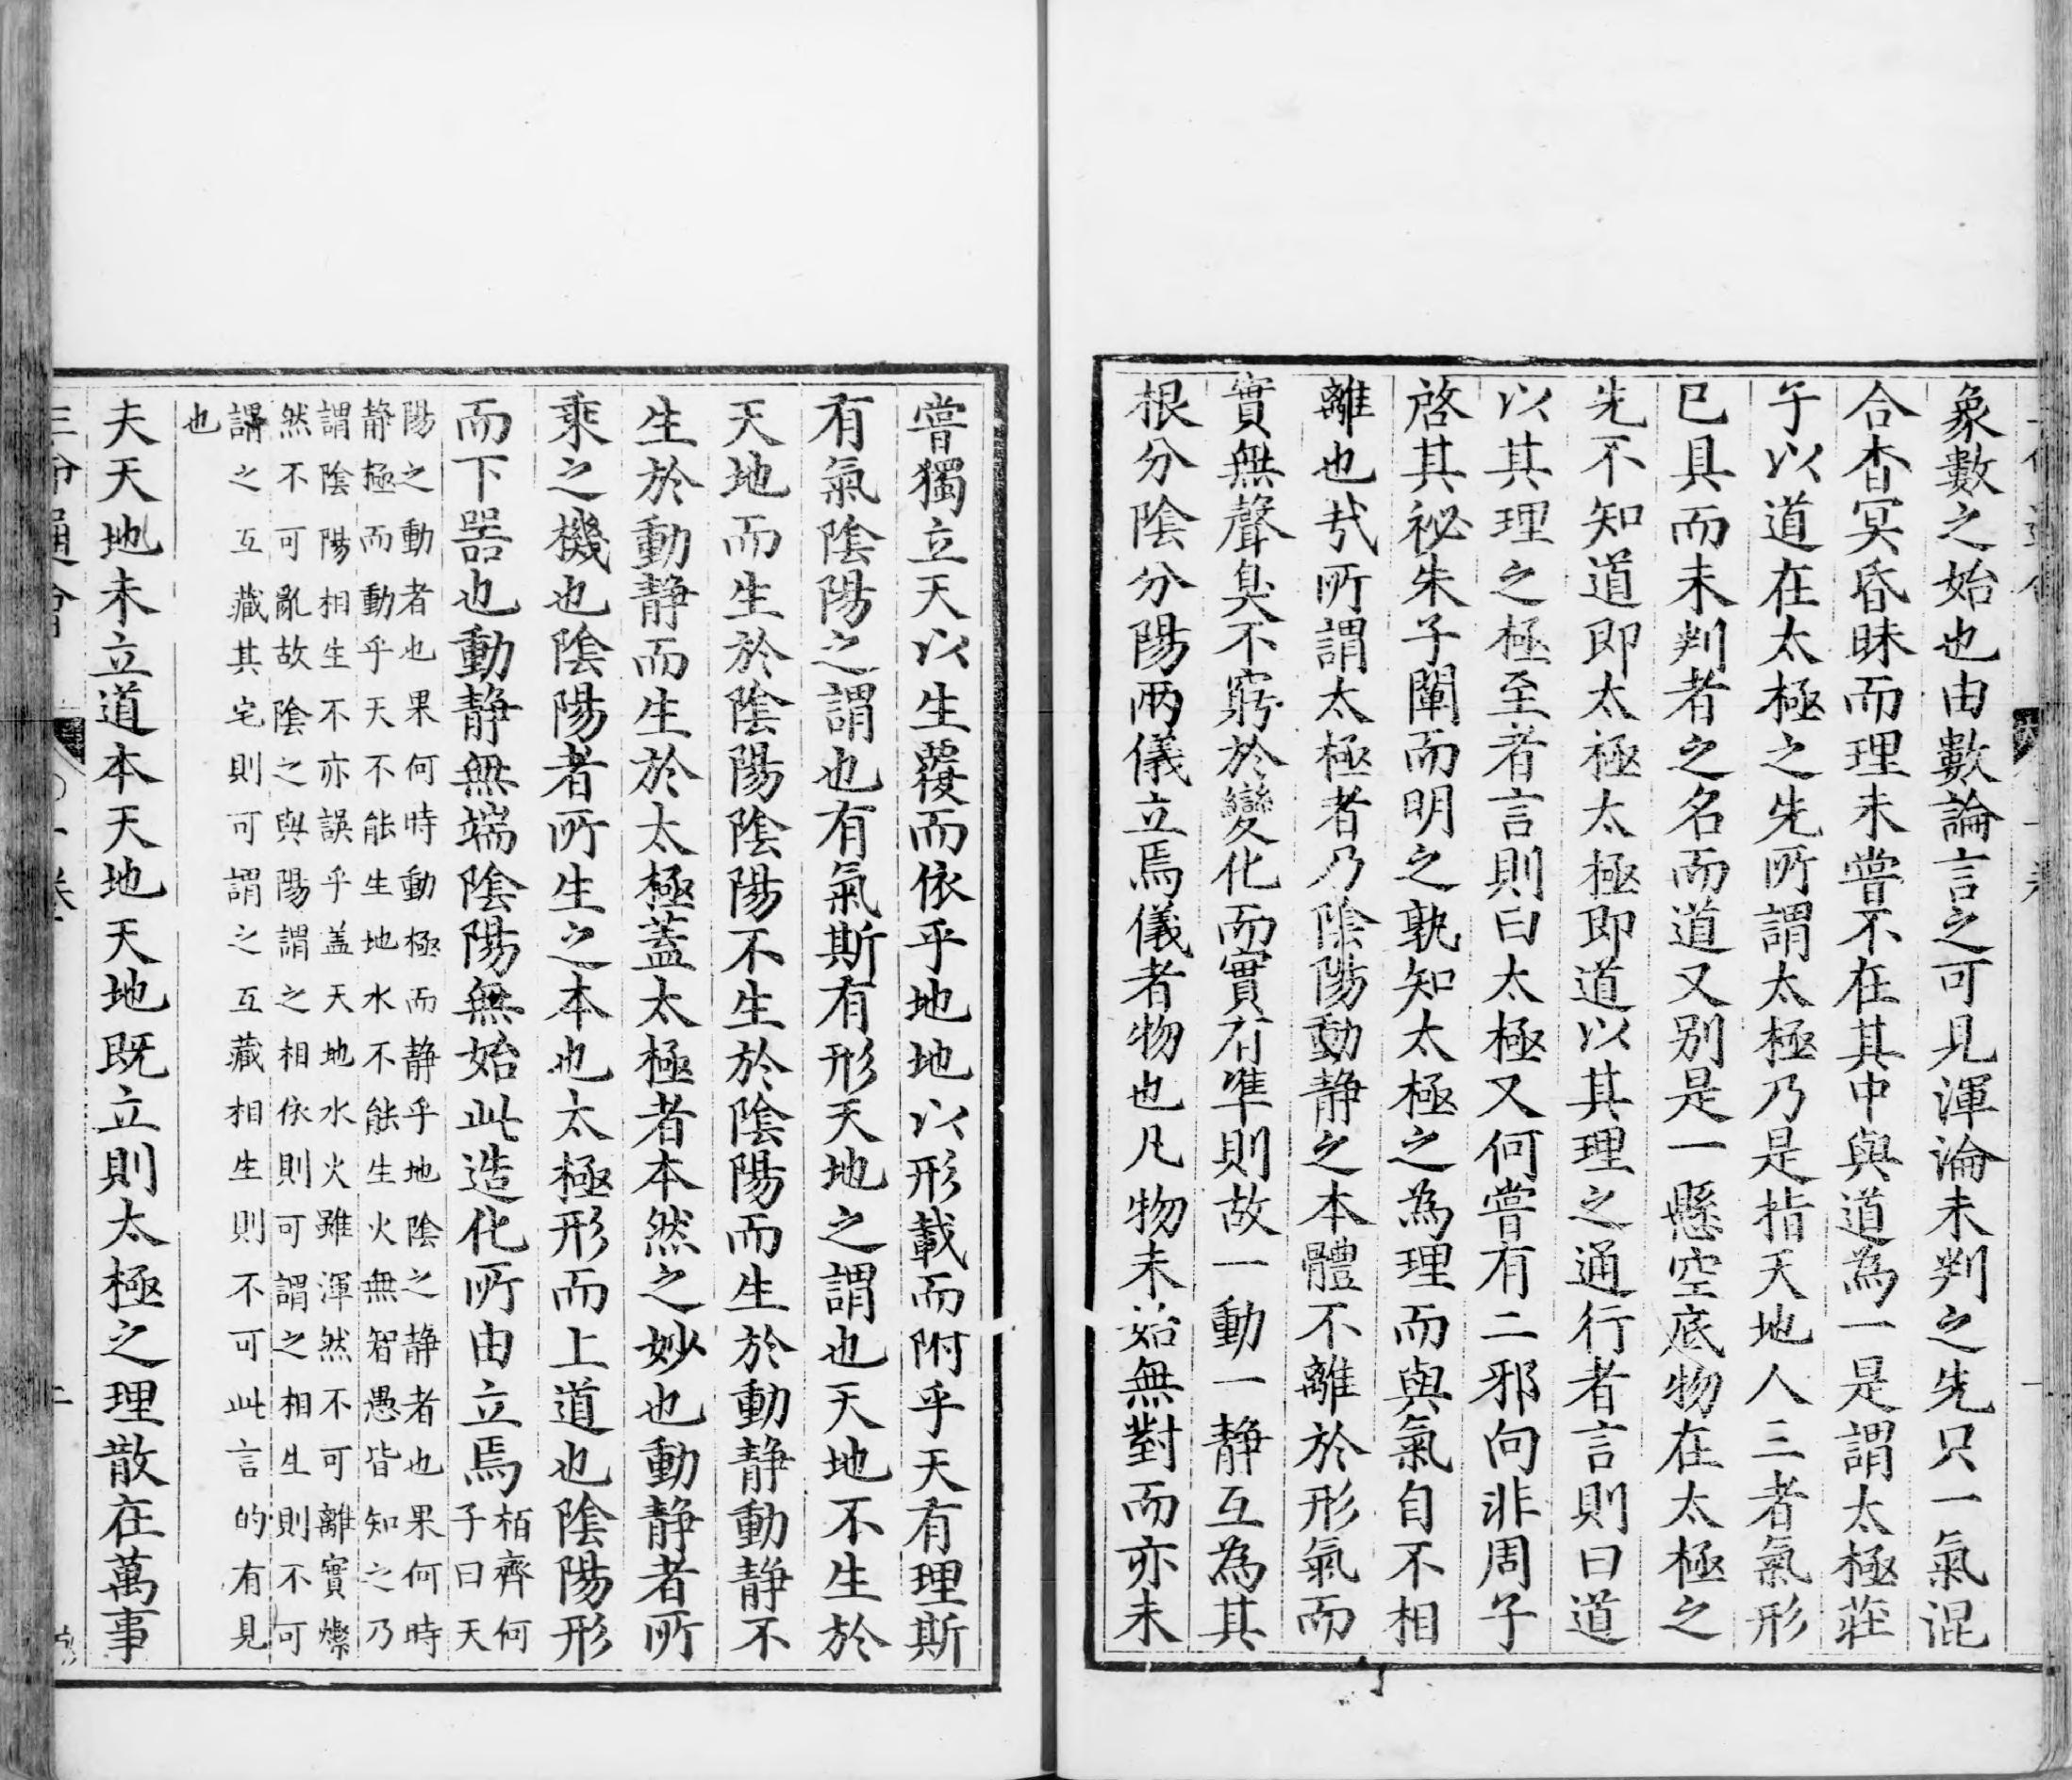 象數之始也由數論言之可見渾淪未判之先只一氣混
合杳冥昏昧而理未嘗不在其中與道為一是謂太極莊
子以道在太極之先所謂太極乃是指天地人三者氣形
已具而未判者之名而道又別是一懸空底物在太極之
先不知道即太極太極即道以其理之通行者言則曰道
以其理之極至者言則曰太極又何嘗有二邪向非周子
啓其祕朱子闡而明之孰知太極之為理而與氣自不相
離也㢤所謂太極者乃陰陽動静之本體不離於形氣而
實無聲臭不窮於變化而實有準則故一動一静互為其
根分陰分陽兩儀立焉儀者物也凡物未始無對而亦未
嘗獨立天以生覆而依乎地地以形載而附乎天有理斯
有氣陰陽之謂也有氣斯有形天地之謂也天地不生於
天地而生於陰陽陰陽不生於陰陽而生於動静動静不
生於動静而生於太極蓋太極者本然之妙也動静者所
乘之機也陰陽者所生之本也太極形而上道也陰陽形
而下器也動静無端陰陽無始此造化所由立焉
柏齊何
子曰天
陽之動者也果何時動極而静乎地陰之静者也果何時
静極而動乎天不能生地水不能生火無智愚皆知之乃
謂陰陽相生不亦誤乎盖天地水火雖渾然不可離實燦
然不可亂故陰之與陽謂之相依則可謂之相生則不可
謂之互藏其宅則可謂之互藏相生則不可此言的有見
也
夫天地未立道本天地天地既立則太極之理散在萬事